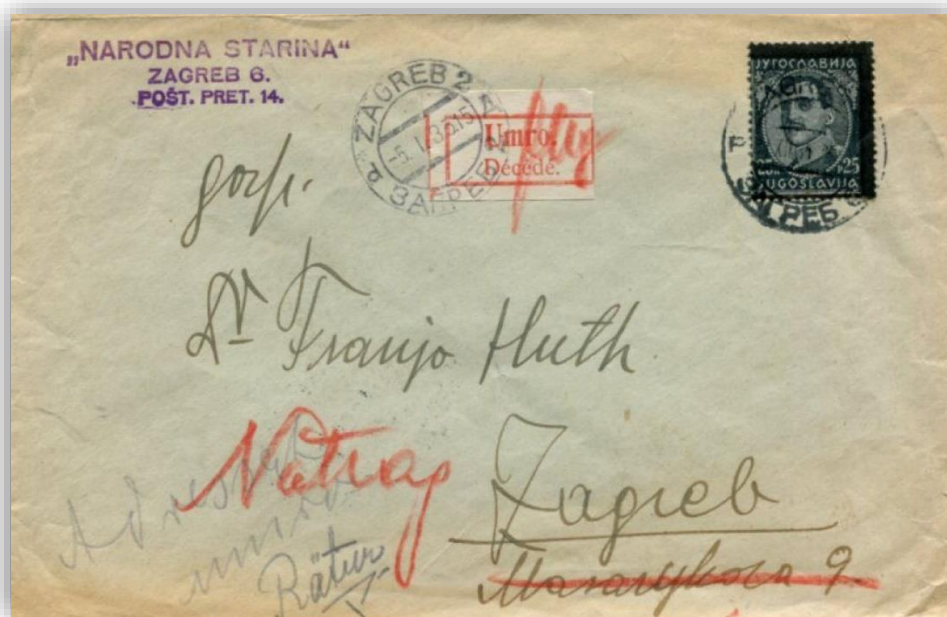 „NARODNA STARINA“
ZAGREB 6.
POŠT. PRET. 14.
ZAGREB 2
-5. I. 36.15
ЗАГРЕБ 2
Umro.
Décédé.
ЈУГОСЛАВИЈА
25
JUGOSLAVIJA
ЗАГРЕБ
gosp.
Dr Franjo Huth
Natrag
Zagreb
Masarykova 9.
Adresat
umro
Rätur